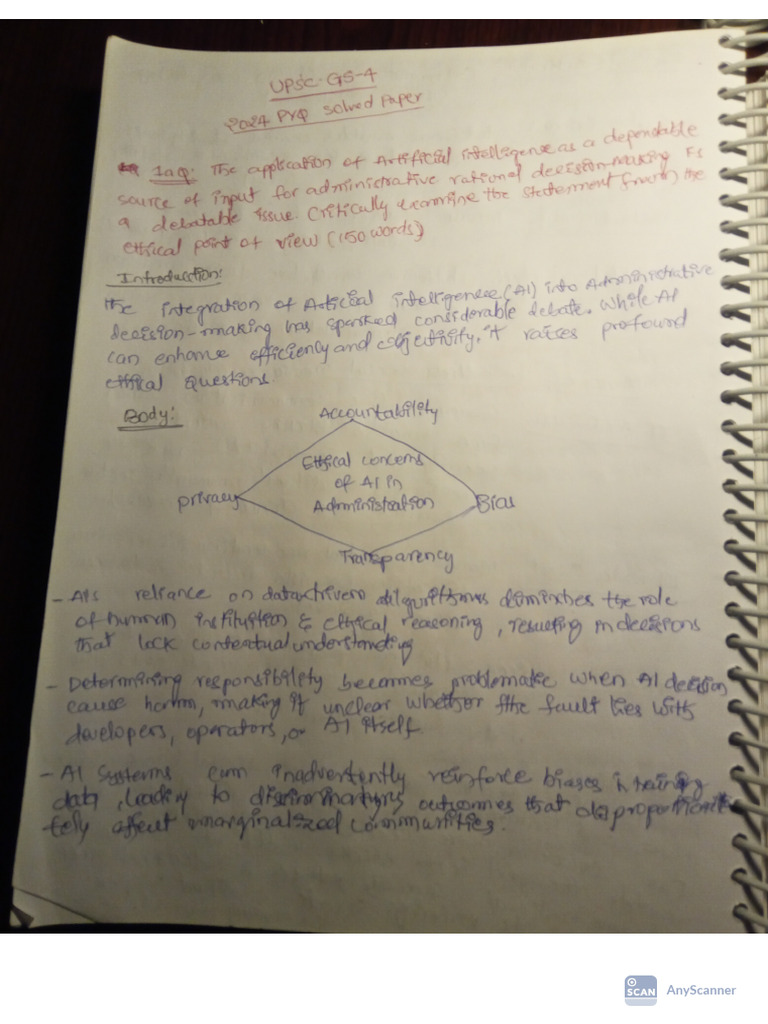 UPSC GS-4
2024 PYQ Solved Paper
1a Q: The application of Artificial intelligence as a dependable
source of input for administrative rational decision-making is
a debatable issue. Critically examine the statement from the
ethical point of view (150 words)
Introduction:
The integration of Articial intelligence (AI) into Administrative
decision-making has sparked considerable debate. While AI
can enhance efficiency and objectivity, it raises profound
ethical questions.
Body:
Accountability
Ethical concerns
of AI in
Administration
privacy
Bias
Transparency
- AI's reliance on data-driven algorithms diminishes the role
of human institution & ethical reasoning, resulting in decisions
that lack contextual understanding
- Determining responsibility becomes problematic when AI decision
cause harm, making it unclear whether the fault lies with
developers, operators, or AI itself.
- AI Systems can inadvertently reinforce biases in training
data, leading to discriminatory outcomes that
tely affect marginalized communities.